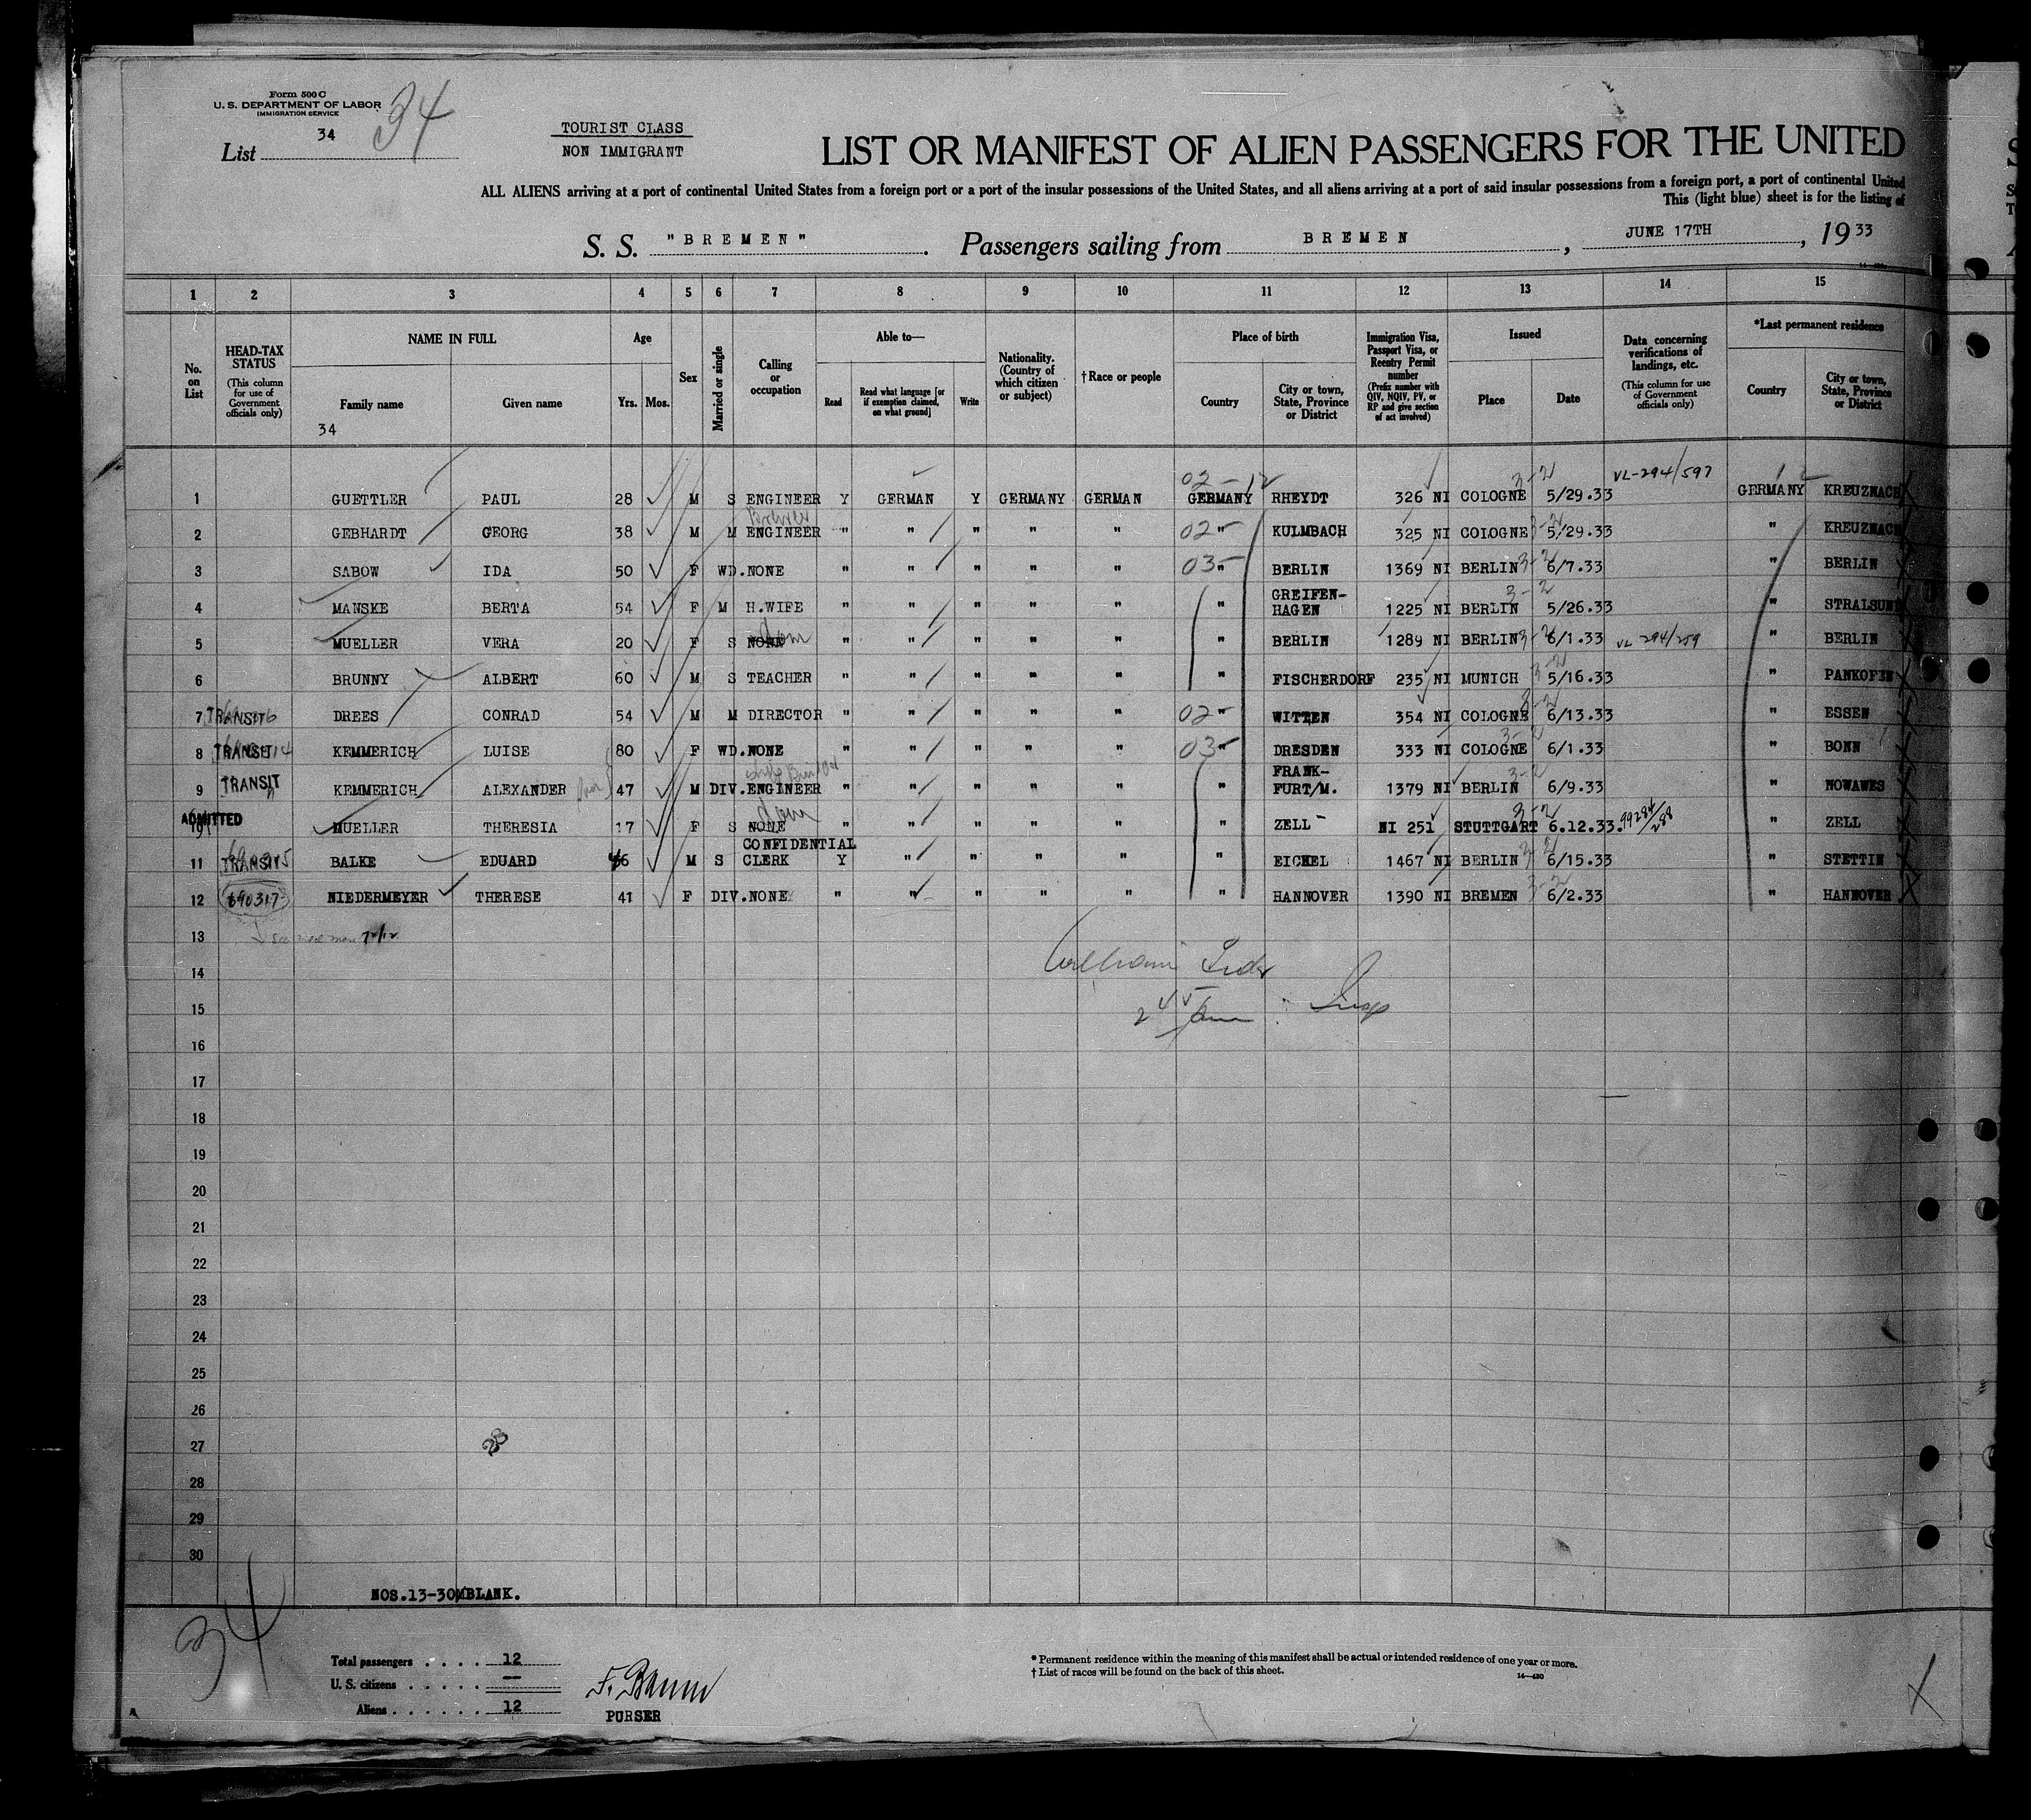 Form 500 C
U. S. DEPARTMENT OF LABOR
IMMIGRATION SERVICE
List 34
34
TOURIST CLASS
NON IMMIGRANT
LIST OR MANIFEST OF ALIEN PASSENGERS FOR THE UNITED
ALL ALIENS arriving at a port of continental United States from a foreign port or a port of the insular possessions of the United States, and all aliens arriving at a port of said insular possessions from a foreign port, a port of continental United
This (light blue) sheet is for the listing of
S. S. "BREMEN". Passengers sailing from BREMEN, JUNE 17TH, 1933
1 2 3 4 5 6 7 8 9 10 11 12 13 14 15
No. on List
HEAD-TAX STATUS (This column for use of Government officials only)
NAME IN FULL
Family name
Given name
34
Age
Yrs. Mos.
Sex
Married or single
Calling or occupation
Able to—
Read
Read what language [or if exemption claimed, on what ground]
Write
Nationality. (Country of which citizen or subject)
† Race or people
Place of birth
Country
City or town, State, Province or District
Immigration Visa, Passport Visa, or Reentry Permit number (Prefix number with QIV, NQIV, PV, or RP and give section of act involved)
Issued
Place
Date
Data concerning verifications of landings, etc. (This column for use of Government officials only)
*Last permanent residence
Country
City or town, State, Province or District
02-12 3-2 VL-294/597
1 GUETTLER PAUL 28 M S ENGINEER Y GERMAN Y GERMANY GERMAN GERMANY RHEYDT 326 NI COLOGNE 5/29.33 GERMANY KREUZNACH
Brewer
2 GEBHARDT GEORG 38 M M ENGINEER " " " " " 02- " KULMBACH 325 NI COLOGNE 3-2 5/29.33 " KREUZNACH
3 SABOW IDA 50 F WD. NONE " " " " " 03- " BERLIN 1369 NI BERLIN 3-2 6/7.33 " BERLIN
4 MANSKE BERTA 54 F M H.WIFE " " " " " " GREIFEN-HAGEN 1225 NI BERLIN 3-2 5/26.33 " STRALSUND
5 MUELLER VERA 20 F S NONE dom " " " " " " BERLIN 1289 NI BERLIN 3-2 6/1.33 VL 294/259 " BERLIN
6 BRUNNY ALBERT 60 M S TEACHER " " " " " " FISCHERDORF 235 NI MUNICH 3-2 5/16.33 " PANKOFEN
7 TRANSIT DREES CONRAD 54 M M DIRECTOR " " " " " 02- " WITTEN 354 NI COLOGNE 3-2 6/13.33 " ESSEN
8 TRANSIT KEMMERICH LUISE 80 F WD. NONE " " " " " 03- " DRESDEN 333 NI COLOGNE 3-2 6/1.33 " BONN
9 TRANSIT KEMMERICH ALEXANDER 47 M DIV. ENGINEER " " " " " " FRANK-FURT/M. 1379 NI BERLIN 3-2 6/9.33 " NOWAWES
10 ADMITTED MUELLER THERESIA 17 F S NONE dom " " " " " " ZELL NI 251 STUTTGART 3-2 6.12.33. 99284/288 " ZELL
11 TRANSIT BALKE EDUARD 46 M S CONFIDENTIAL CLERK Y " " " " " EICKEL 1467 NI BERLIN 3-2 6/15.33 " STETTIN
12 690317 NIEDERMEYER THERESE 41 F DIV. NONE " " " " " " HANNOVER 1390 NI BREMEN 3-2 6/2.33 " HANNOVER
13
14
15
Insp
16
17
18
19
20
21
22
23
24
25
26
27
28
28
29
30
NOS.13-30 BLANK.
34
Total passengers . . . . 12
U. S. citizens . . . . . —
Aliens . . . . . . 12
F. Baum
PURSER
* Permanent residence within the meaning of this manifest shall be actual or intended residence of one year or more.
† List of races will be found on the back of this sheet.
14—430